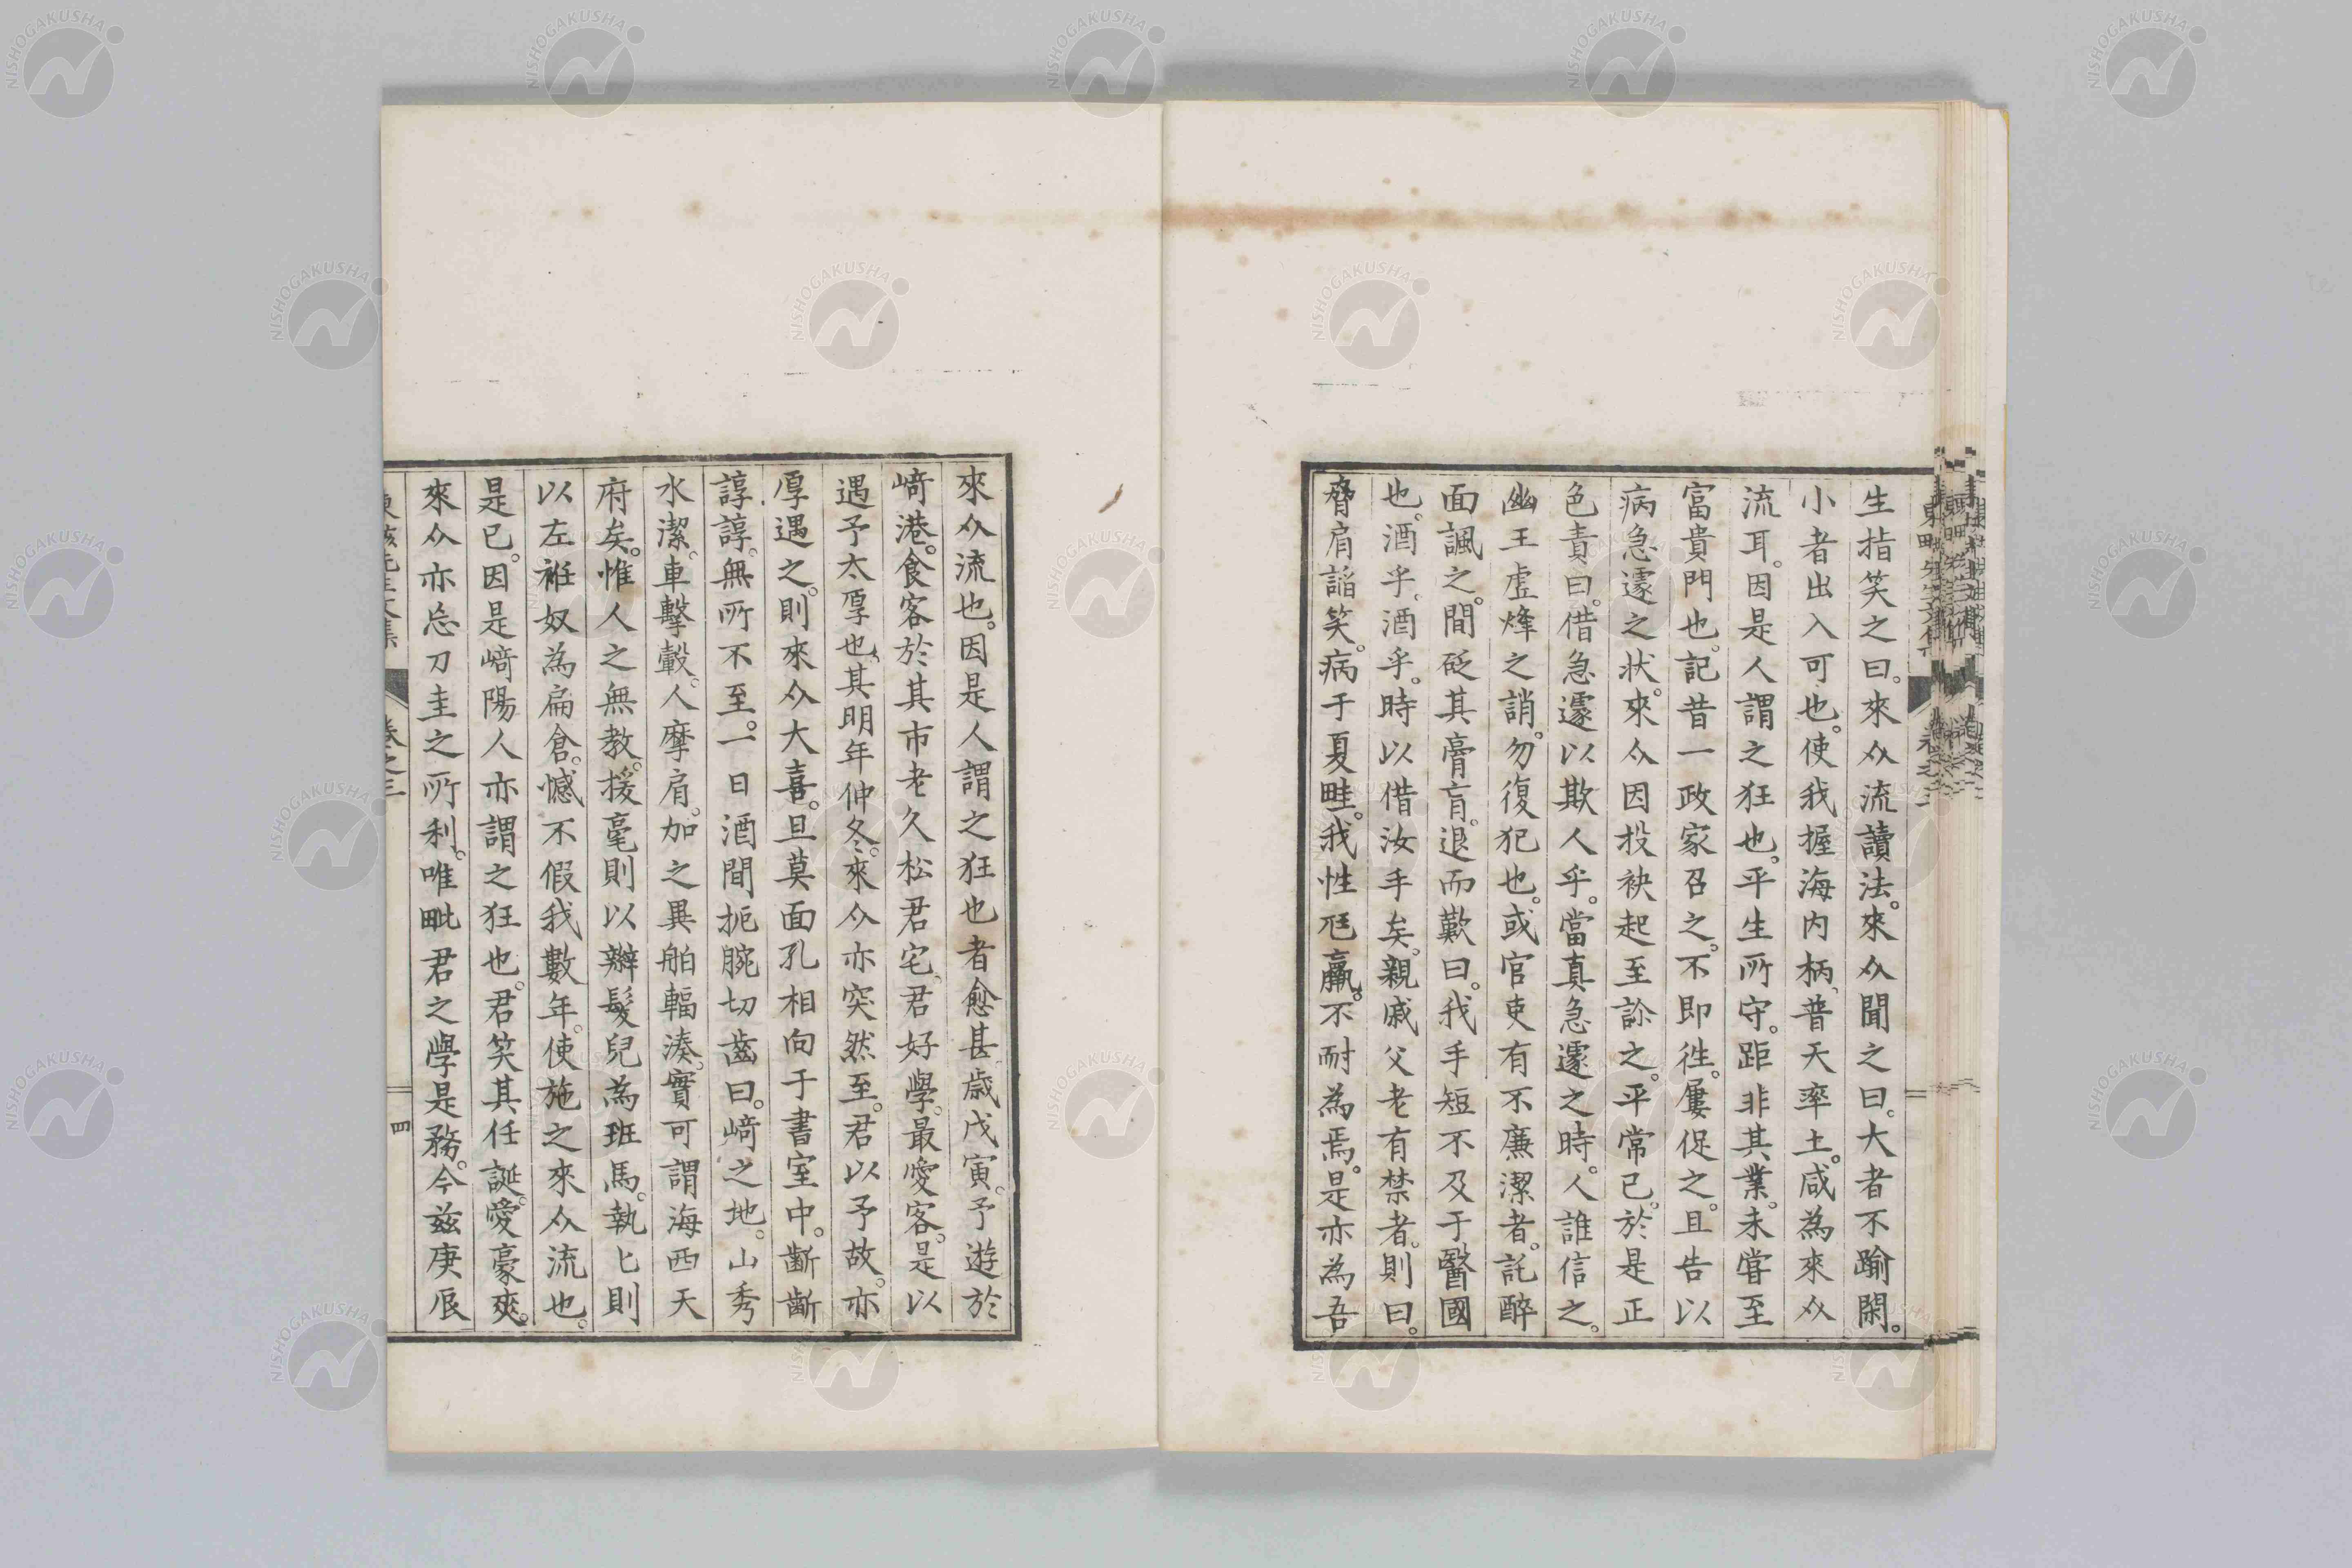 生指笑之曰。來㕕流讀法。來㕕聞之曰。大者不踰閑。
小者出入可也。使我握海内柄、普天率土。咸為來㕕
流耳。因是人謂之狂也。平生所守。距非其業。未嘗至
富貴門也。記昔一政家召之。不即徃。屢促之。且告以
病急遽之状。來㕕因投袂起至診之。平常已。於是正
色責曰。借急遽以欺人乎。當真急遽之時。人誰信之。
幽王虚烽之誚。勿復犯也。或官吏有不廉潔者。託醉
面諷之。間砭其膏肓。退而歎曰。我手短不及于醫國
也。酒乎。酒乎。時以借汝手矣。親戚父老有禁者。則曰。
脅肩謟笑。病于夏畦。我性尫羸。不耐為焉。是亦為吾
來㕕流也。因是人謂之狂也者愈甚。歳戊寅。予遊於
﨑港。食客於其市老久松君宅、君好學。最愛客。是以
遇予太厚也。其明年仲冬。來㕕亦突然至。君以予故。亦
厚遇之。則來㕕大喜。旦莫面孔相向于書室中。齗齗
諄諄。無所不至。一日酒間扼腕切齒曰。﨑之地。山秀
水潔。車擊轂。人摩肩。加之異舶輻湊。實可謂海西天
府矣。惟人之無教。援毫則以辮髮兒為班馬。執匕則
以左袵奴為扁倉。憾不假我數年。使施之來㕕流也。
是已。因是﨑陽人亦謂之狂也。君笑其任誕。愛豪爽。
來㕕亦忘刀圭之所利。唯毗君之學是務。今茲庚辰
卷之三
四